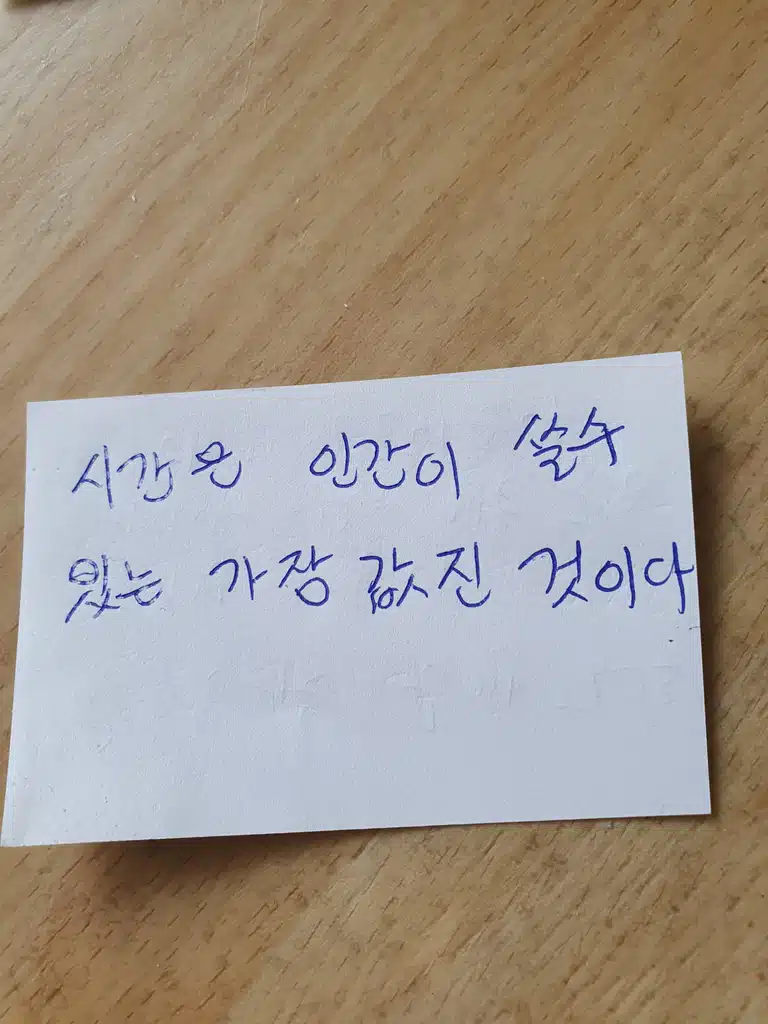 시간은 인간이 쓸수
있는 가장 값진 것이다